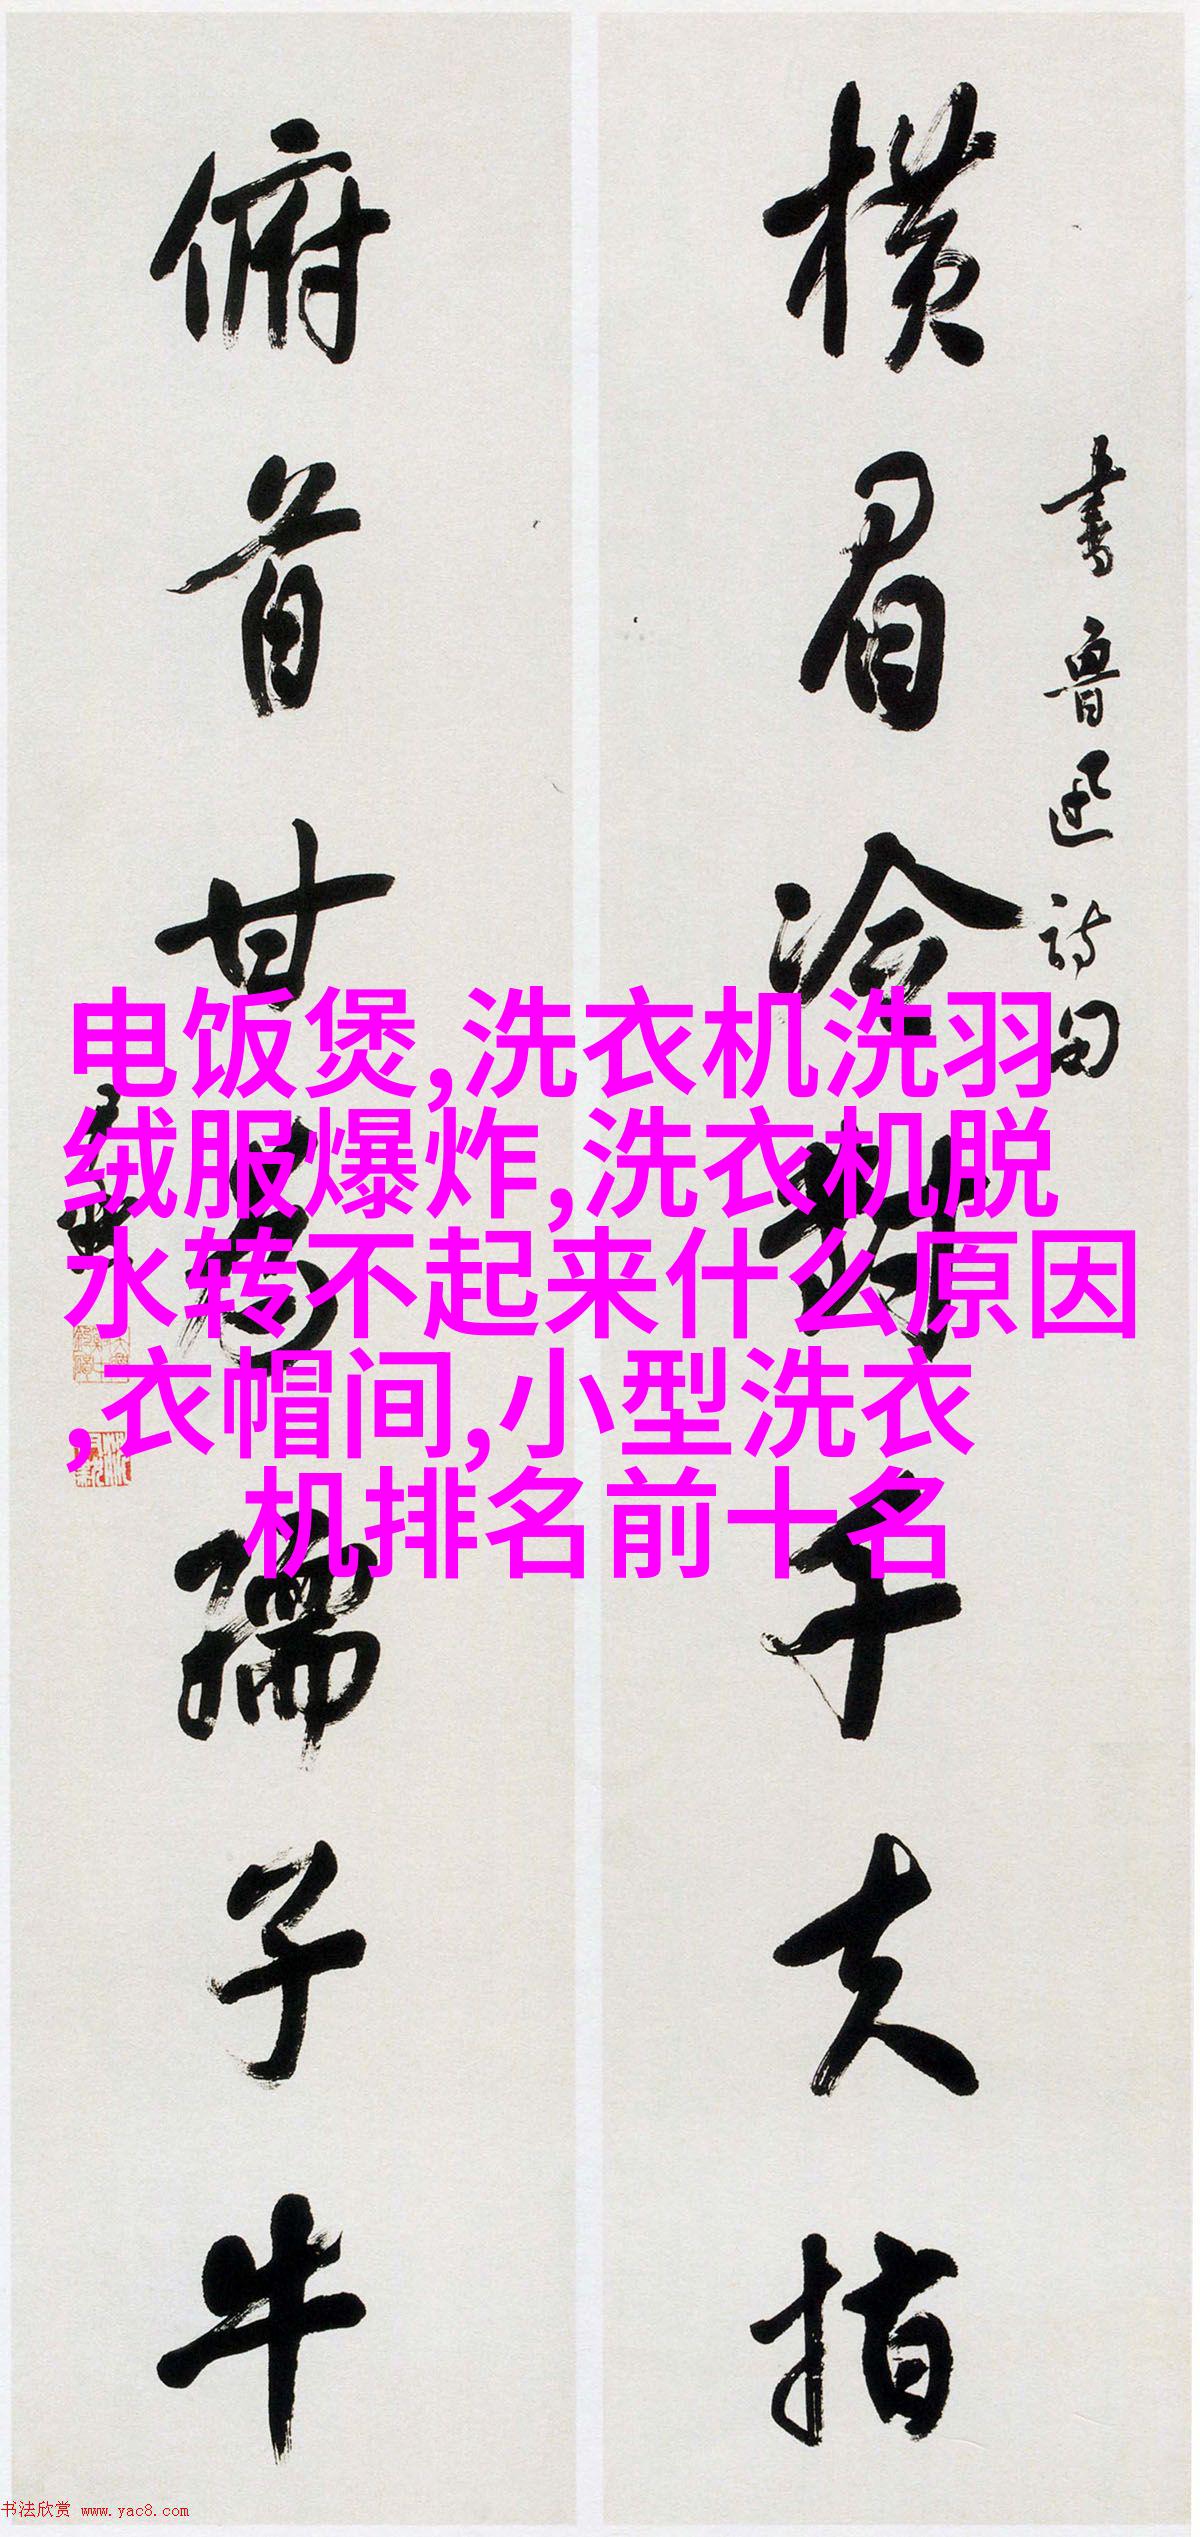 横眉冷对千夫指
书鲁迅诗句
俯首甘为孺子牛
电饭煲,洗衣机洗羽
绒服爆炸,洗衣机脱
水转不起来什么原因
,衣帽间,小型洗衣
机排名前十名
书法欣赏 www.yac8.com